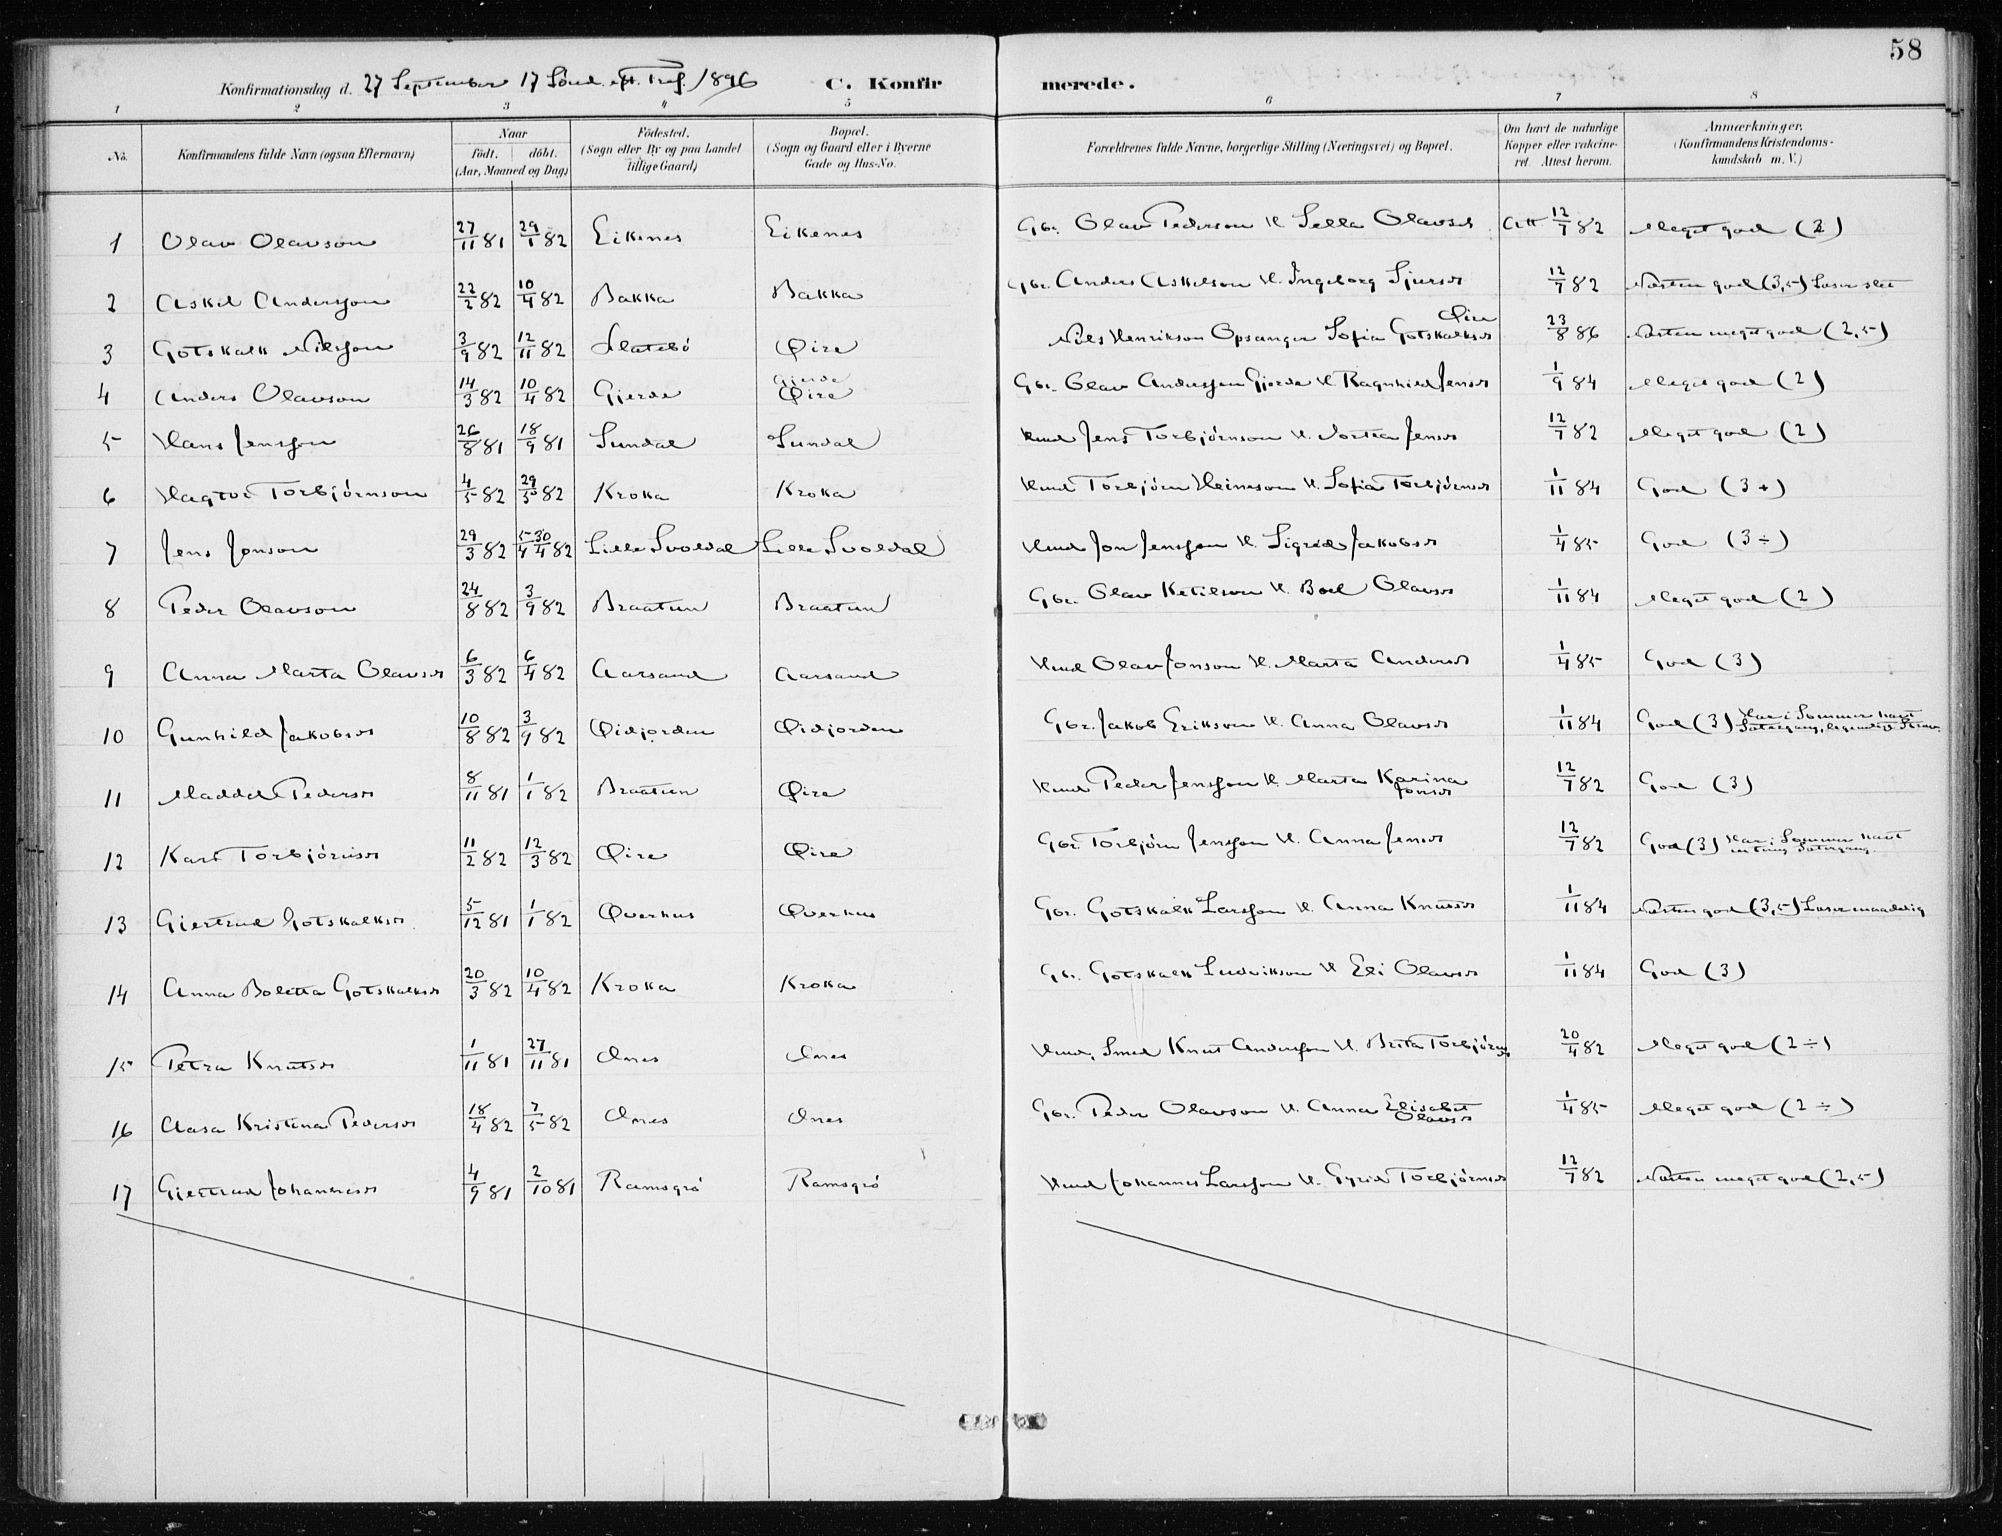 58
Konfirmationsdag d. 27 September 17 Sönd. eft. Tref. 1896 C. Konfir merede.
1 2 3 4 5 6 7 8
No. Konfirmandens fulde Navn (ogsaa Efternavn) Naar födt. döbt. (Aar, Maaned og Dag) Födested. (Sogn eller By og paa Landet tillige Gaard) Bopæl. (Sogn og Gaard eller i Byerne Gade og Hus-No. Forældrenes fulde Navne, borgerlige Stilling (Næringsvei) og Bopæl. Om havt de naturlige Kopper eller vakcineret. Attest herom. Anmærkninger. (Konfirmandens Kristendomskundskab m. V.)
1 Olav Olavson 27/11 81 29/1 82 Eikenes Eikenes Gbr. Olav Pederson H. Sella Olavsd Att 12/7 82 Meget god (2)
2 Askel Andersson 22/2 82 10/4 82 Bakka Bakka Gbr. Anders Askelson H. Ingeborg Sjursd 12/7 82 Næsten god (3,5) Læser slet
3 Gotskalk Nilsson 3/9 82 12/11 82 Slatebö Øire Nils Henrikson Opsanger Sofia Gotskalksd Øire 23/8 86 Næsten meget god (2,5)
4 Anders Olavson 14/3 82 10/4 82 Gjerde Gjerde Øire Gbr. Olav Andersson Gjerde H. Ragnhild Jensd 1/9 84 Meget god (2)
5 Hans Jensson 26/8 81 18/9 81 Sundal Sundal Hmd Jens Torbjörnson H. Jortea Jensd 12/7 82 Meget god (2)
6 Hagtor Torbjörnson 4/5 82 29/5 82 Kroka Kroka Hmd Torbjörn Heineson H. Sofia Torbjörnsd 1/11 84 God (3+)
7 Jens Jonson 29/3 82 5/4 30/4 82 Lille Svoldal Lille Svoldal Hmd Jon Jensson H. Sigrid Jakobsd 1/4 85 God (3÷)
8 Peder Olavson 24/8 82 3/9 82 Braatun Braatun Gbr. Olav Ketilson H. Boel Olavsd 1/11 84 Meget god (2)
9 Anna Marta Olavsd 6/3 82 6/4 82 Aarsand Aarsand Hmd Olav Jonson H. Marta Andersd 1/4 85 God (3)
10 Gunhild Jakobsd 10/8 82 3/9 82 Øidjorden Øidjorden Gbr. Jakob Erikson H. Anna Olavsd 1/11 84 God (3) Har i Sommer havt
11 Maddel Pedersd 8/11 81 1/1 82 Braatun Øire Hmd Peder Jensson H. Marta Karina Jonsd 12/7 82 God (3)
12 Kari Torbjörnsd 11/2 82 12/3 82 Øire Øire Gbr. Torbjörn Jensson H. Anna Jensd 12/7 82 God (3) Har i Sommer havt
13 Gjertrud Gotskalksd 5/12 81 1/1 82 Øverhus Øverhus Gbr. Gotskalk Larsson H. Anna Knutsd 1/11 84 Næsten god (3,5) Læser maadelig
14 Anna Boletta Gotskalksd 20/3 82 10/4 82 Kroka Kroka Gbr. Gotskalk Ludvikson H. Eli Olavsd 1/11 84 God (3)
15 Petra Knutsd 1/11 81 27/11 81 Ænes Ænes Hmd, Smed Knut Andersson H. Brita Torbjörnsd 20/4 82 Meget god (2÷)
16 Aasa Kristina Pedersd 18/4 82 7/5 82 Ænes Ænes Gbr. Peder Olavson H. Anna Elisabet Olavsd 1/4 85 Meget god (2÷)
17 Gjertrud Johannesd 4/9 81 2/10 81 Ramsgrö Ramsgrö Hmd Johannes Larsson H. Gyrid Torbjörnsd 12/7 82 Næsten meget god (2,5)